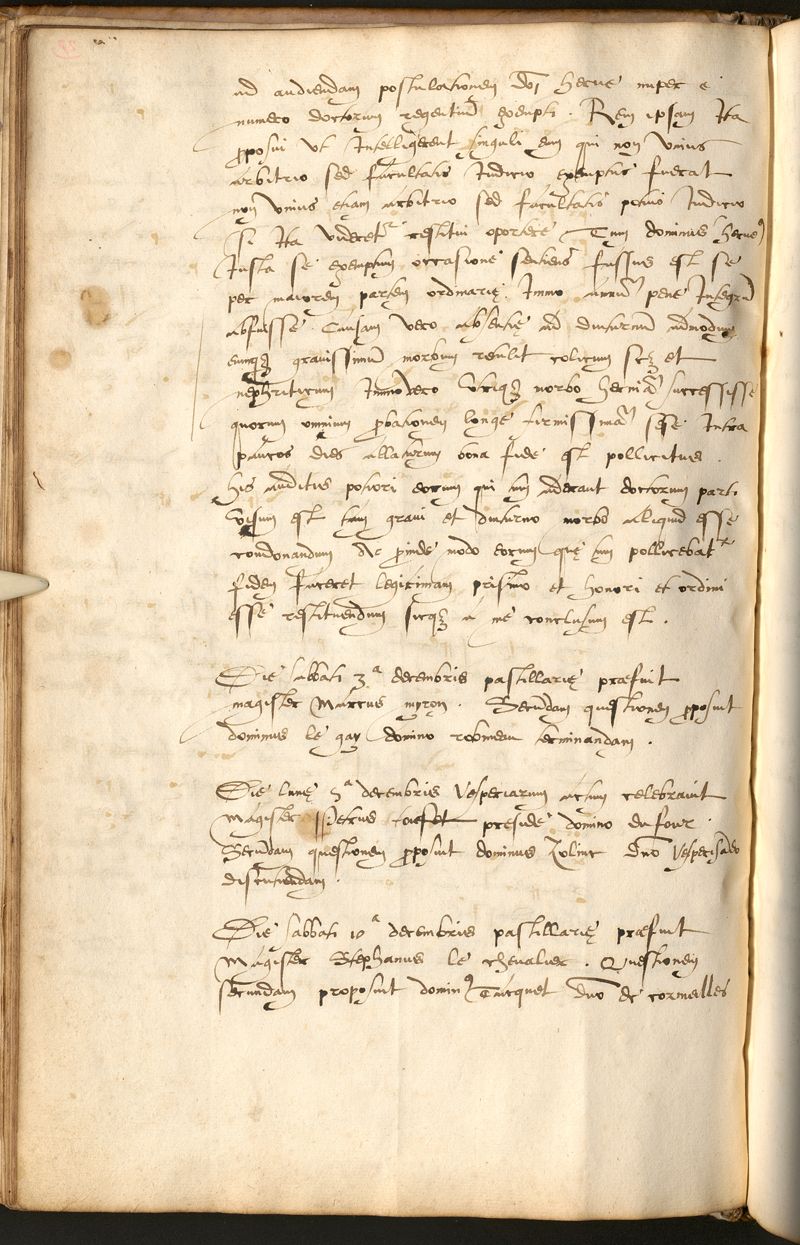 ad audiendam postulationem dni herue nuper e
numero doctorum regentium exempti. Rem ipsam Ita
proposui Vt Intelligerent singuli eum qui non Vnius
arbitrio sed facultatis Iudicio exemptus fuerat
non Vnius etiam arbitrio sed facultatis penus Iudicio
si Ita Videretr restitui oportere Tum dominus herue
Iusta se exemptum occasione fassus est se
per maiorem partem ordinarię Immo annum pene Integrum
abfuisse. Causam Vero absentię ad diuturnum admodum
eumqz grauissimum morbum retulit colicum scz et
nephriticum Immo Vero Vtriqz morbo herniam successisse
quorum omnium probationem longe firmissimam sese Intra
paucos dies allaturum bona fide est pollicitus.
his auditis potiori eorum qui tum aderant doctorum parti
Visum est tam graui et diuturno morbo aliquid esse
condonandum Ac proinde modo eorum quę tum pollicebatr
fidem faceret legitimam pristino et honori et ordini
esse restituendum sicqz a me conclusum est.
Die sabbati 3a decembris pastillarię praefuit
magister Marcus myron. Secundam questionem proposuit
dominus le gay domino robineau terminandam.
Die lunę 5a decembris Vesperiarum actum celebrauit
Magister Petrus preside domino du four.
Secundam questionem proposuit dominus dno Vesperisando
discutiendam.
Die sabbati 10a decembris pastillarię praefuit
Magister Stephanus le cheualier. Questionem
secundam proposuit domin9 Tacquet dno de cormeilles